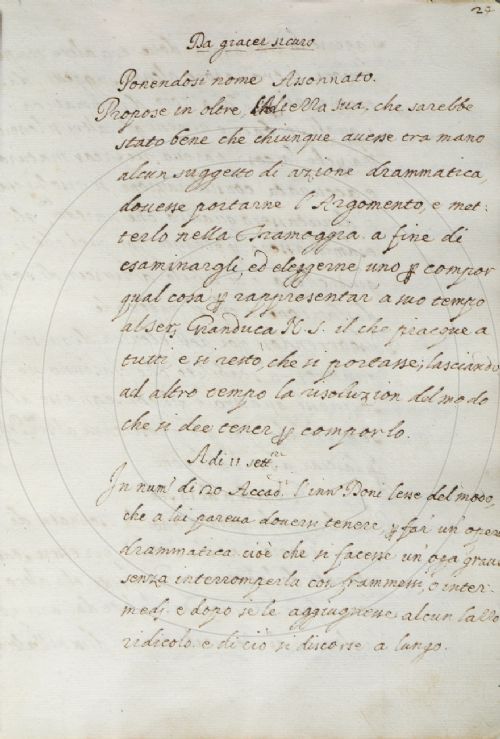 27
Da giacer sicuro
Ponendosi nome Assonnato.
Propose in oltre, l'Altezza sua, che sarebbe
stato bene che chiunque avesse tra mano
alcun suggetto di azione drammatica,
dovesse portarne l'Argomento, e met-
terlo nella Tramoggia a fine di
esaminargli, ed elegerne uno ꝑ compor
qual cosa ꝑ rappresentar a suo tempo
al Ser. Granduca N. S. il che piacque a
tutti e si restò, che si portasse; lasciando
ad altro tempo la risoluzion del modo
che si dee tener ꝑ comporlo.
Adi 11 sett.
In num.º di Accad. l'inn. Doni lesse del modo,
che a lui pareva doversi tenere, ꝑ far un'opera
drammatica cioè che si facesse un' opa grave
senza interromperla con frammessi, o inter-
medj. e dopo se le aggiugnesse alcun ballo
ridicolo. e di ciò si discorse a lungo.